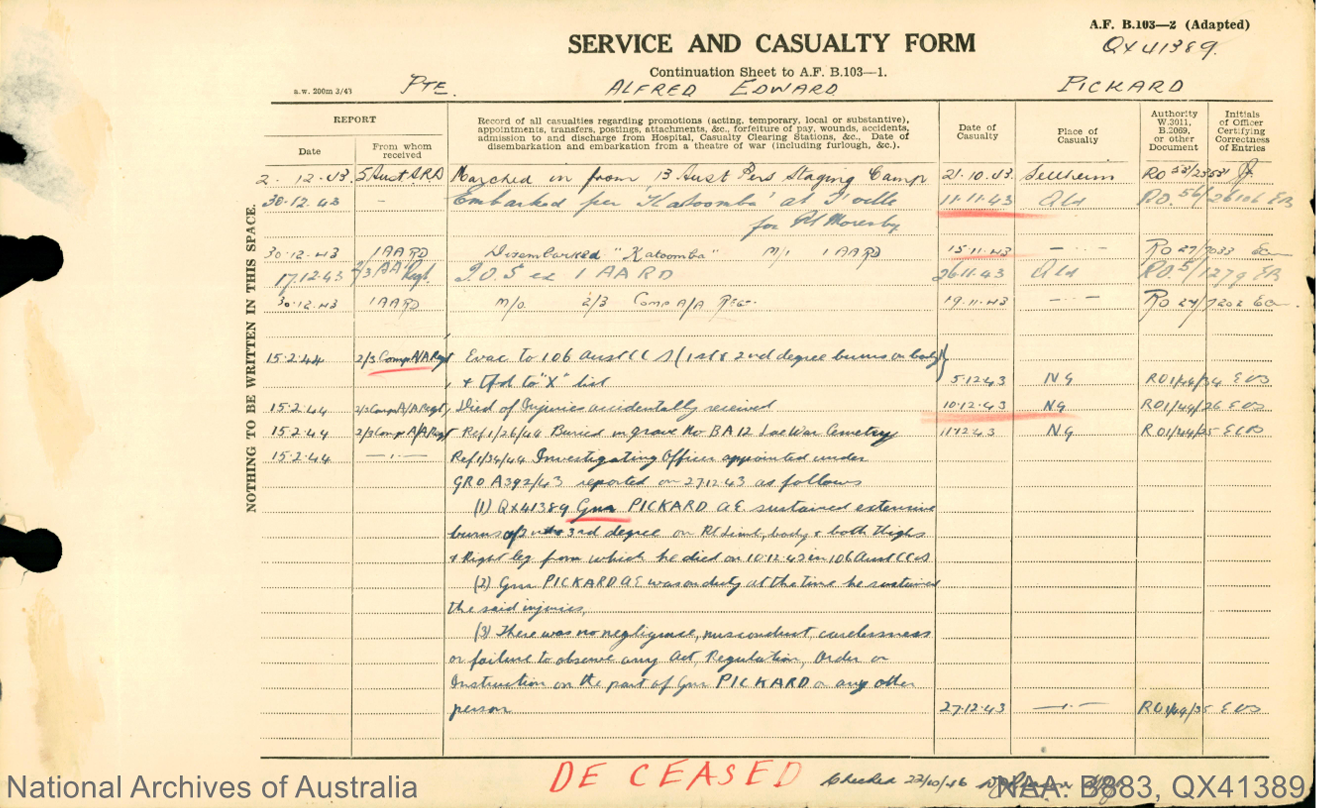 A.F. B.103—2 (Adapted)
SERVICE AND CASUALTY FORM
QX41389.
Continuation Sheet to A.F. B.103—1.
a.w. 200m 3/43
PTE. ALFRED EDWARD PICKARD
REPORT
Date
From whom received
Record of all casualties regarding promotions (acting, temporary, local or substantive),
appointments, transfers, postings, attachments, &c., forfeiture of pay, wounds, accidents,
admission to and discharge from Hospital, Casualty Clearing Stations, &c., Date of
disembarkation and embarkation from a theatre of war (including furlough, &c.).
Date of Casualty
Place of Casualty
Authority W.3011, B.2069, or other Document
Initials of Officer Certifying Correctness of Entries
NOTHING TO BE WRITTEN IN THIS SPACE.
2.12.43. 5 Aust PRD Marched in from 13 Aust Pers Staging Camp 21.10.43. Sellheim RO
30.12.43 - Embarked per "Katoomba" at T'ville 11.11.43 Qld RO. 56/26106 EB
for Pt Moresby
30.12.43 1AARD Disembarked "Katoomba" M/I 1 AARD 15.11.43 — " — RO 27/7033
17.12.43 2/3 AA Regt. T.O.S ex 1 AARD 26.11.43 Qld RO.5/1279 EB
30.12.43 1AARD M/O 2/3 Comp A/A Reg. 19.11.43 — " — RO 27/7202
15.2.44 2/3 Comp A/A Regt Evac to 106 Aust CCS (1st & 2nd degree burns on body)
& tfd to "X" list 5.12.43 NG RO1/44/34
15.2.44 2/3 Comp A/A Regt Died of Injuries accidentally received 10.12.43 NG RO1/44/26
15.2.44 2/3 Comp A/A Regt Ref 1/26/44 Buried in grave No BA12 Lae War Cemetry 11.12.43 NG RO1/44/35
15.2.44 — " — Ref 1/34/44 Investigating Officer appointed under
GRO A392/43 reported on 27.12.43 as follows
(1) QX41389 Gnr PICKARD A E sustained extensive
burns of 2nd & 3rd degree on Rt Limb, body & both thighs
& Right leg from which he died on 10.12.43 in 106 Aust CCS
(2) Gnr PICKARD A E was on duty at the time he sustained
the said injuries,
(3) There was no negligence, misconduct carelessness
or failure to observe any Act, Regulation, Order or
Instruction on the part of Gnr PICKARD or any other
person 27.12.43 — " — RO1/44/35
DECEASED Checked 22/10/46
National Archives of Australia
NAA: B883, QX41389